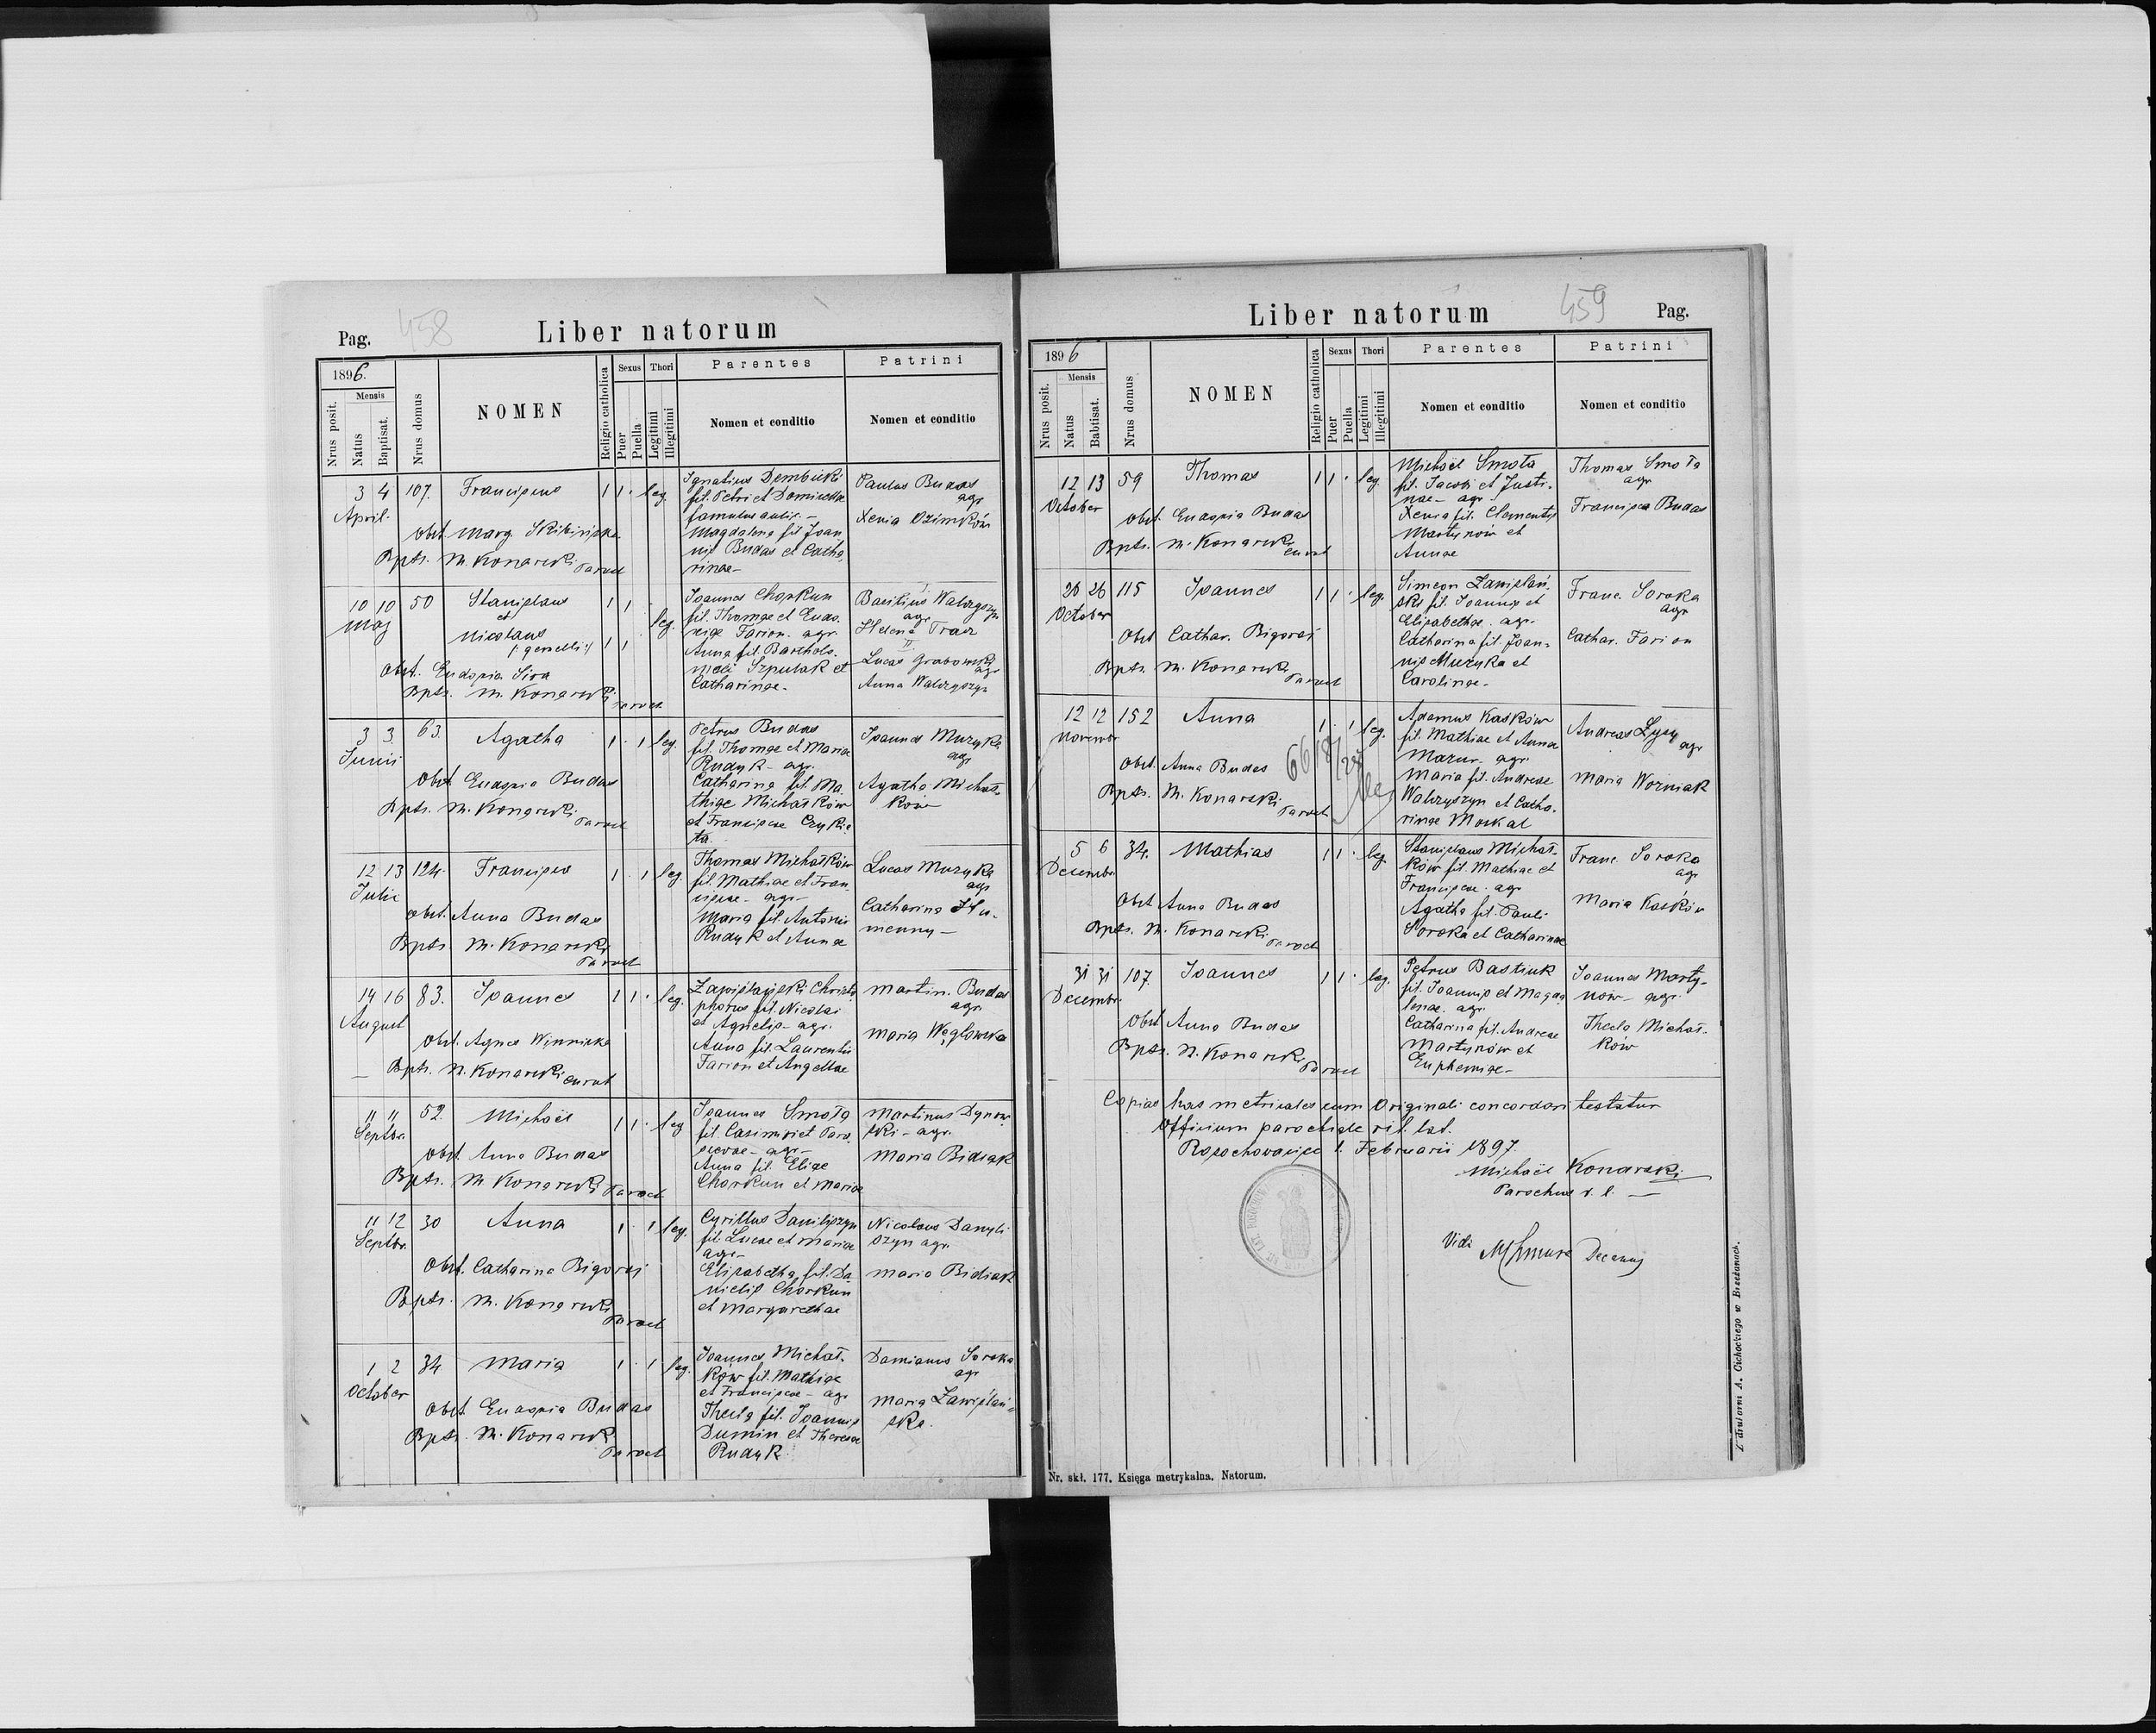 Pag. 458 Liber natorum
1896.
Nrus posit.
Mensis
Natus
Baptisat.
Nrus domus
NOMEN
Religio catholica
Sexus
Puer
Puella
Thori
Legitimi
Illegitimi
Parentes
Nomen et conditio
Patrini
Nomen et conditio
3 4 107. Franciscus 1 1 · leg.
April.
Obst. Marg.
Bpts. M. Konarski Paroch
Ignatius Dembicki
fil. Petri et Dominicae
famulus aulic. –
Magdalena fil. Joan
nis Budas et Catha
rinae –
Paulus Budas
agr.
Xenia Dzimków
10 10 50 Stanislaus 1 1 ·
Maj
et
Nicolaus
(: gemelli :) 1 1 leg.
Obst. Eudoxia Sira
Bpts. M. Konarski Paroch
Joannes Chorkun
fil. Thomae et Eudo-
xiae Farion. agr.
Anna fil. Bartholo-
maei Szpulak et
Catharinae –
I
Basilius Walczyszyn
agr
Helena Tracz
II
Lucas Grabowski
agr
Anna Walczyszyn
3 3 63. Agatha 1 · 1 leg.
Junii
Obst. Eudoxia Budas
Bpts. M. Konarski Paroch
Petrus Budas
fil. Thomae et Mariae
Rudyk – agr.
Catharina fil. Ma-
thiae Michałków
et Franciscae Czykie-
ta.
Joannes Muzyka
agr
Agatha Michał-
ków
12 13 124. Franciscus 1 · 1 leg.
Julii
Obst. Anna Budas
Bpts. M. Konarski
Paroch
Thomas Michałków
fil. Mathiae et Fran
ciscae – agr –
Maria fil. Antonii
Rudyk et Annae
Lucas Muzyka
agr
Catharina Hu-
menny –
14 16 83. Joannes 1 1 · leg.
August
Obst. Agnes Winnicka
Bpts. M. Konarski curat
Zawislański Christo
phorus fil. Nicolai
et Agnetis – agr.
Anna fil. Laurentii
Farion et Angellae
Martin. Budas
agr.
Maria Węglowska
11 11 52. Michael 1 1 · leg
Septbr.
Obst. Anna Budas
Bpts. M Konarski Paroch
Joannes Smota
fil. Casimiri et Para-
scevae – agr –
Anna fil. Eliae
Chorkun et Mariae
Martinus Dynow
ski – agr.
Maria Bidiak
11 12 30 Anna 1 · 1 leg.
Septbr.
Obst. Catharina Bigoraj
Bpts. M. Konarski
Paroch
Cyrillus Daniliszyn
fil. Lucae et Mariae
agr –
Elisabetha fil. Da-
nielis Chorkun
et Margarethae
Nicolaus Danyli
szyn agr.
Maria Bidiak
1 2 34 Maria 1 · 1 leg.
October
Obst. Eudoxia Budas
Bpts. M. Konarski
Paroch
Joannes Michał-
ków fil. Mathiae
et Franciscae – agr
Thecla fil. Joannis
Dumin et Theresae
Rudyk
Damianus Soroka
agr
Maria Zawislań-
ska.
Liber natorum 459 Pag.
1896
Nrus posit.
Mensis
Natus
Babtisat.
Nrus domus
NOMEN
Religio catholica
Sexus
Puer
Puella
Thori
Legitimi
Illegitimi
Parentes
Nomen et conditio
Patrini
Nomen et conditio
12 13 59 Thomas 1 1 · leg.
October
Obst. Eudoxia Budas
Bpts. M. Konarski curat
Michael Smota
fil. Jacobi et Justi-
nae – agr.
Xenia fil. Clementis
Martynów et
Annae
Thomas Smota
agr
Francisca Budas
26 26 115 Joannes 1 1 · leg.
October
Obst Cathar. Bigoraj
Bpts. M. Konarski
Paroch
Simeon Zawislań-
ski fil. Joannis et
Elisabethae. agr.
Catharina fil. Joan-
nis Muzyka et
Carolinae –
Franc. Soroka
agr
Cathar. Farion
12 12 152 Anna 1 · 1 leg.
Novembr
Obst. Anna Budas
Bpts. M. Konarski
Paroch
Adamus Kasków
fil. Mathiae et Annae
Mazur – agr.
Maria fil. Andreae
Walczyszyn et Catha-
rinae Moskal
Andreas Łysy
agr
Maria Woźniak
5 6 34. Mathias 1 1 · leg.
Decembr.
Obst Anna Budas
Bpts. M. Konarski
Paroch
Stanislaus Michał-
ków fil. Mathiae et
Franciscae. agr
Agatha fil. Pauli
Soroka et Catharinae
Franc. Soroka
agr
Maria Kasków
31 31 107. Joannes 1 1 · leg.
Decembr.
Obst Anna Budas
Bpts. M. Konarski
Paroch
Petrus Bastiuk
fil. Joannis et Magda
lenae. agr.
Catharina fil. Andreae
Martynów et
Euphemiae –
Joannes Marty-
nów – agr.
Thecla Michał-
ków
Copias has metricales cum Originali concordari testatur
Officium parochiale rit. lat.
Rosochowaciec 1. Februarii 1897.
Michael Konarski
Parochus r. l. –
Vidi Decanus
Nr. skł. 177. Księga metrykalna. Natorum.
Z drukarni A. Cichockiego w Brzeżanach.